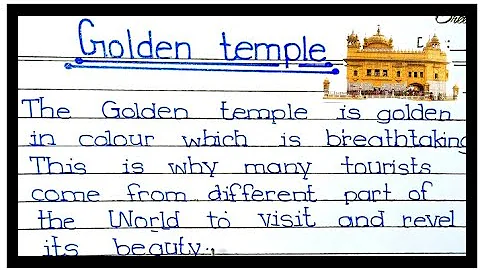 Golden temple
The Golden temple is golden
in colour which is breathtaking
This is why many tourists
come from different part of
the World to visit and revel
its beauty.